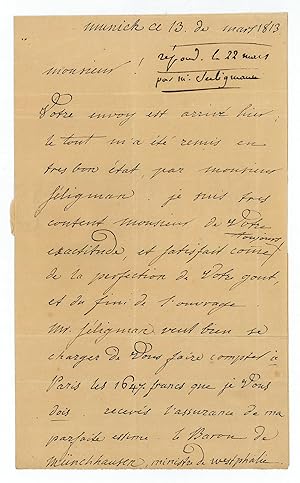 munich ce 13. de mars 1813
répond. le 22 mars
par mr. Seeligmann
monsieur !
Votre envoy est arrivé hier,
le tout m'a été remis en
tres bon état, par monsieur
Séligman : je suis tres
content monsieur de Votre
exactitude, et satisfait come toujours
de la perfection de Votre gout,
et du fini de l'ouvrage
Mr. Séligman veut bien se
charger de Vous faire compter à
Paris les 1647 francs que je Vous
dois recevés l'assurance de ma
parfaite estime. le Baron de
Münchhausen, ministre de westphalie